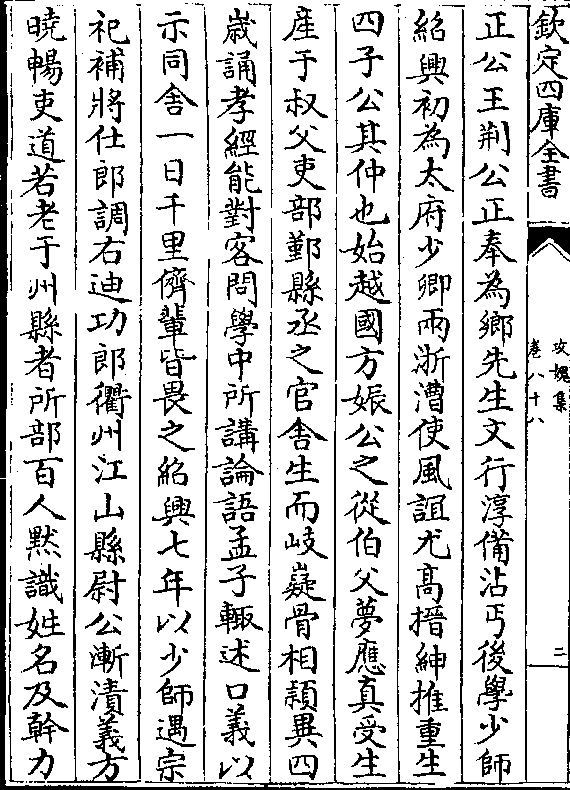 欽定四庫全書
攻媿集
卷八十八
二
正公王荆公正奉為鄉先生文行淳備沾丐後學少師
紹興初為太府少卿兩浙漕使風誼尤高搢紳推重生
四子公其仲也始越國方娠公之從伯父夢應真受生
産于叔父吏部鄞縣丞之官舎生而岐嶷骨相頴異四
歳誦孝經能對客問學中所講論語孟子輙述口義以
示同舎一日千里儕輩皆畏之紹興七年以少師遇宗
祀補將仕郎調右迪功郎衢州江山縣尉公漸漬義方
曉暢吏道若老于州縣者所部百人黙識姓名及幹力